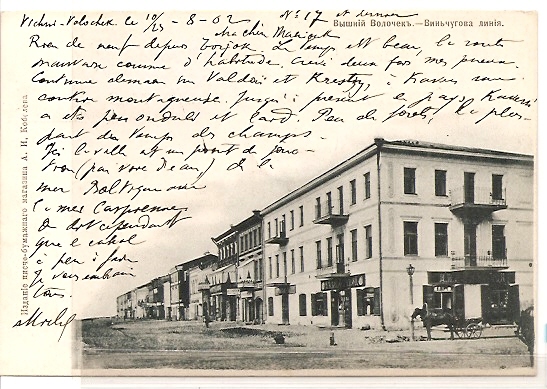 Vichni-Volochek. le 10/23 - 8 - 02 No 17 et dernier
Вышній Волочекъ.—Виньчугова линія.
Ma chère
Rien de neuf depuis Torjok. Le temps est beau, la route
mauvaise comme d'habitude. Crevé deux fois mes pneus.
Continue demain sur Valdaï et Kresttsy, à travers
contrée montagneuse. Jusqu'à présent le pays traversé
a été peu ondulé et laid. Peu de forêts, la plu-
part du temps des champs.
Ici la ville est un point de jonc-
tion (par voie d'eau) de la
mer Baltique avec
la mer Caspienne
On dit cependant
que le canal
à peu à faire
Je vous embrasse
tous.
Изданіе писче-бумажнаго магазина А. И. Кобелева